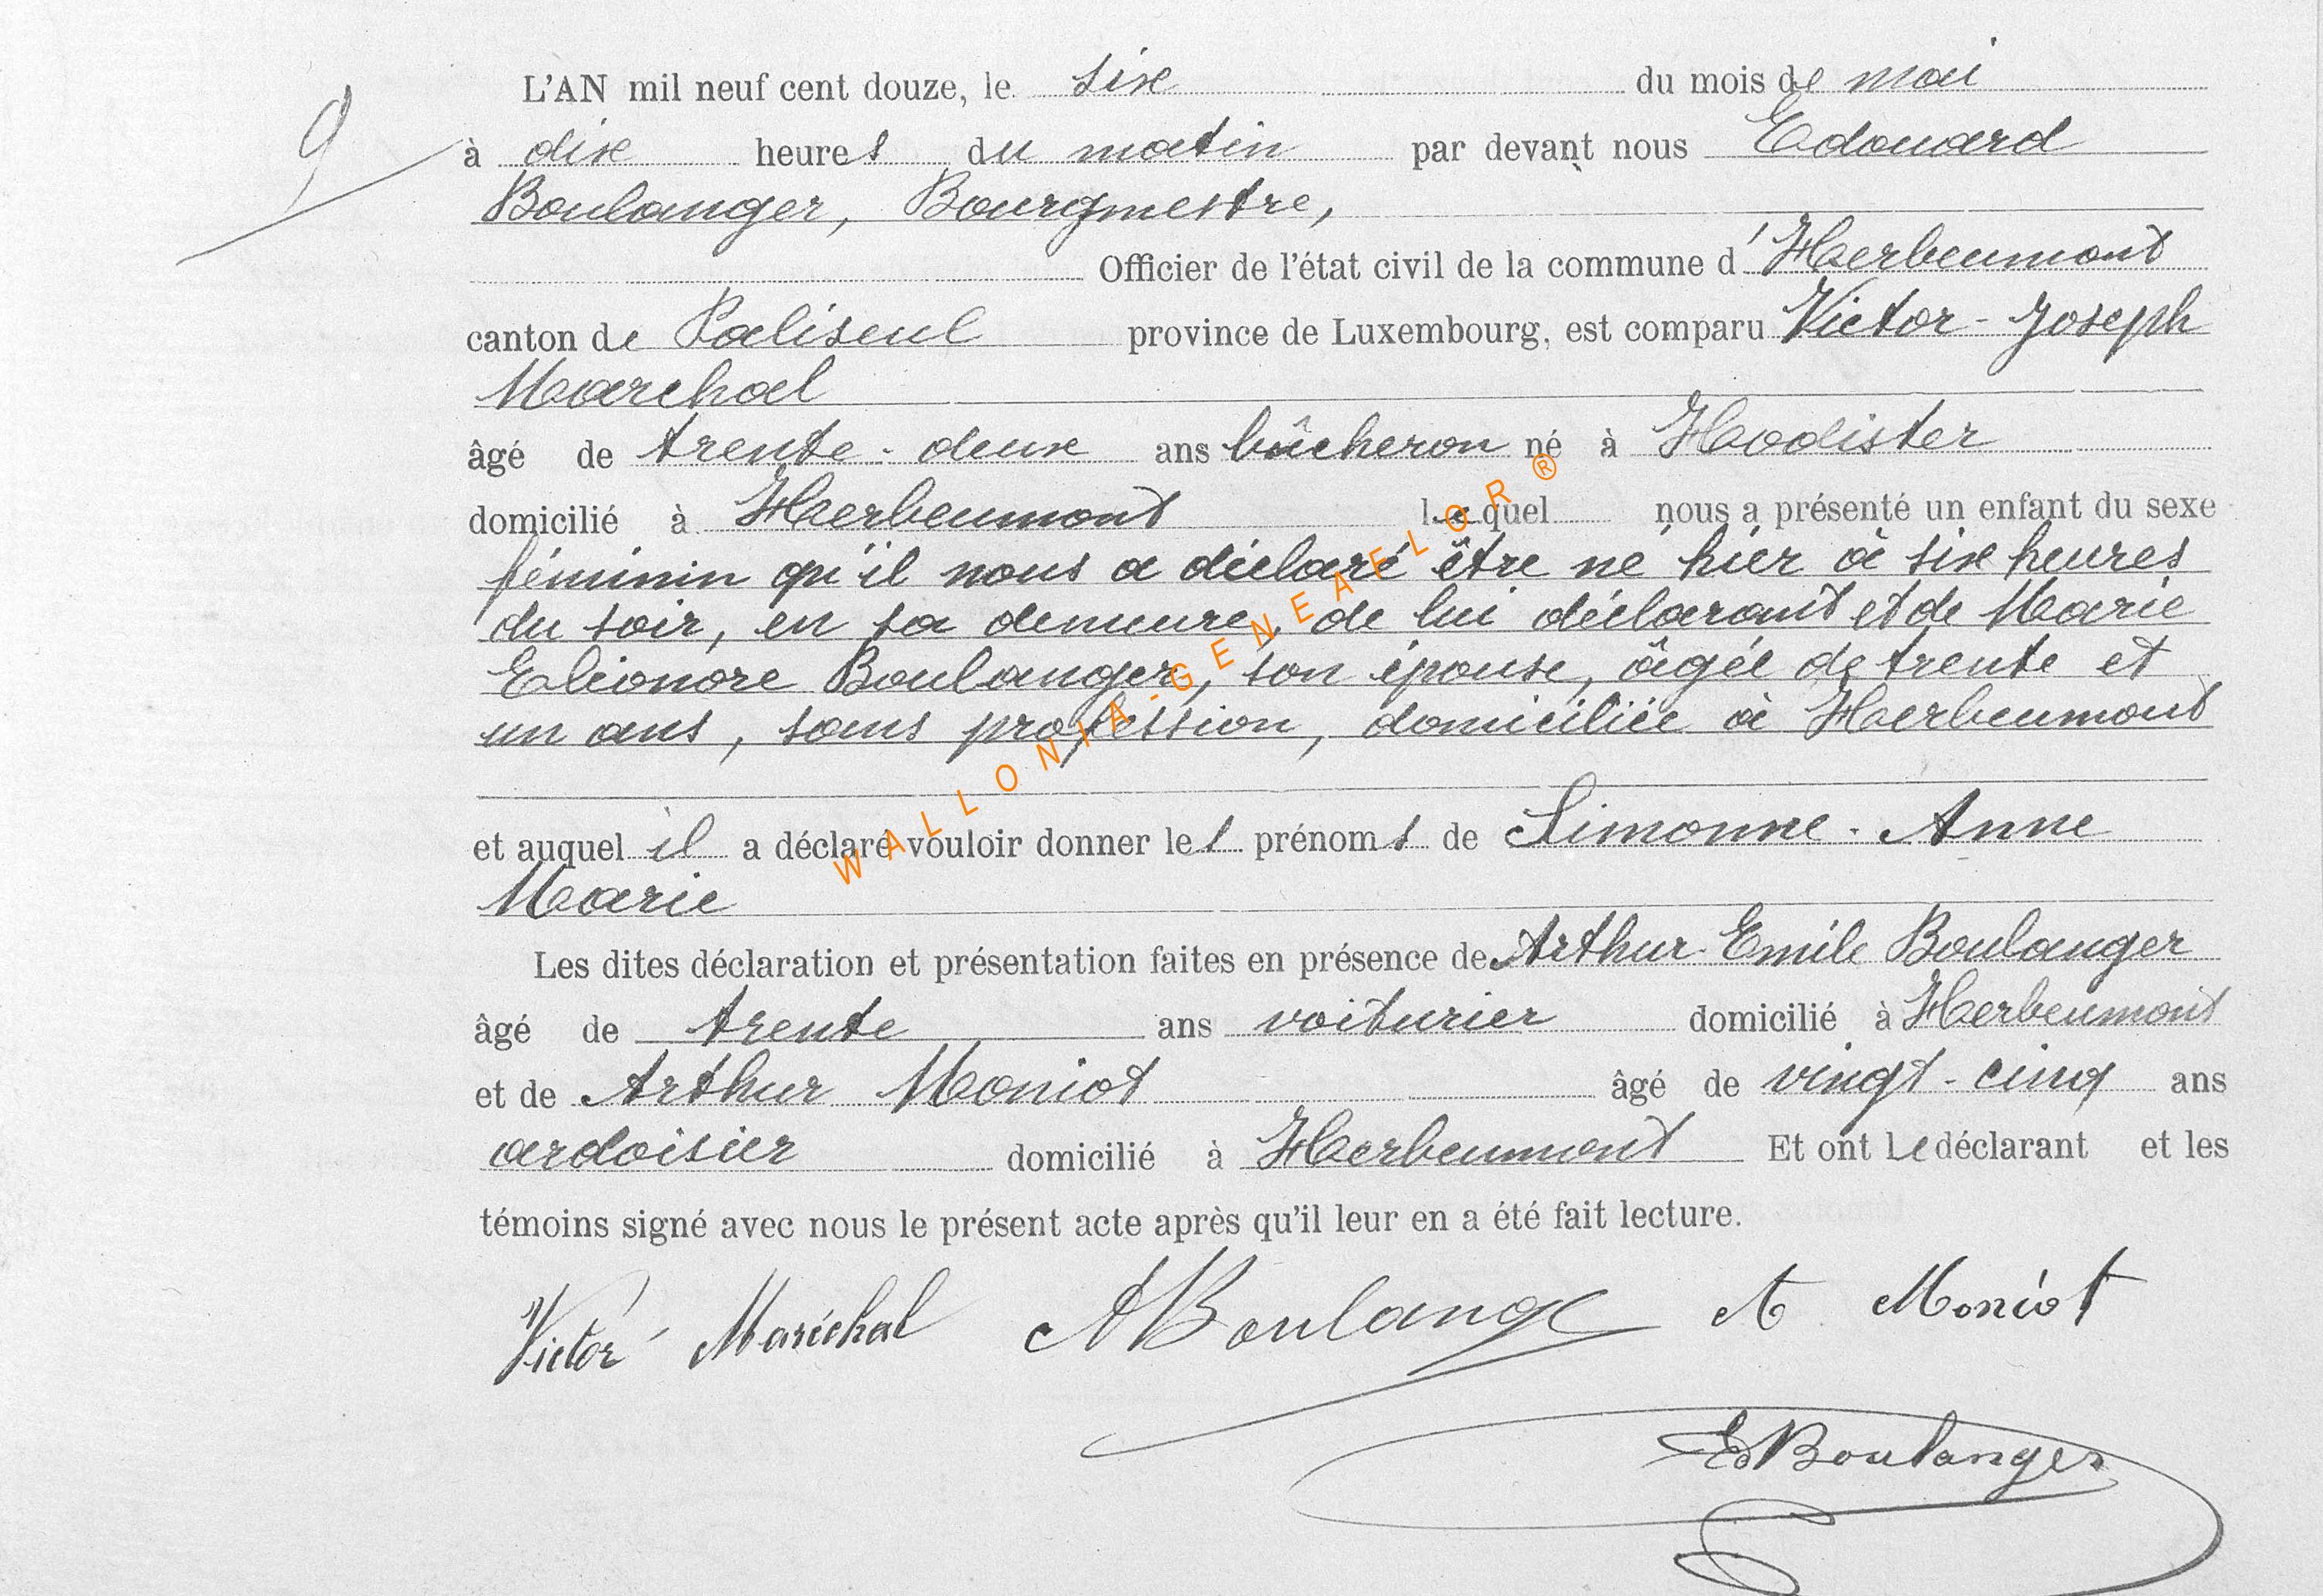 9
L'AN mil neuf cent douze, le six du mois de mai
à dix heures du matin par devant nous Edouard
Boulanger, Bourgmestre,
Officier de l'état civil de la commune d'Herbeumont
canton de Paliseul province de Luxembourg, est comparu Victor-Joseph
Marchal
âgé de trente-deux ans bûcheron né à Hodister
domicilié à Herbeumont lequel nous a présenté un enfant du sexe
féminin qu'il nous a déclaré être né hier à six heures
du soir, en sa demeure, de lui déclarant et de Marie
Eléonore Boulanger, son épouse, âgée de trente et
un ans, sans profession, domiciliée à Herbeumont
et auquel il a déclaré vouloir donner les prénoms de Simonne-Anne
Marie
Les dites déclaration et présentation faites en présence de Arthur-Emile Boulanger
âgé de trente ans voiturier domicilié à Herbeumont
et de Arthur Moniot âgé de vingt-cinq ans
ardoisier domicilié à Herbeumont Et ont le déclarant et les
témoins signé avec nous le présent acte après qu'il leur en a été fait lecture.
Victor Maréchal ABoulange A Moniot
Ed Boulanger
WALLONIA-GENEAFLOR®